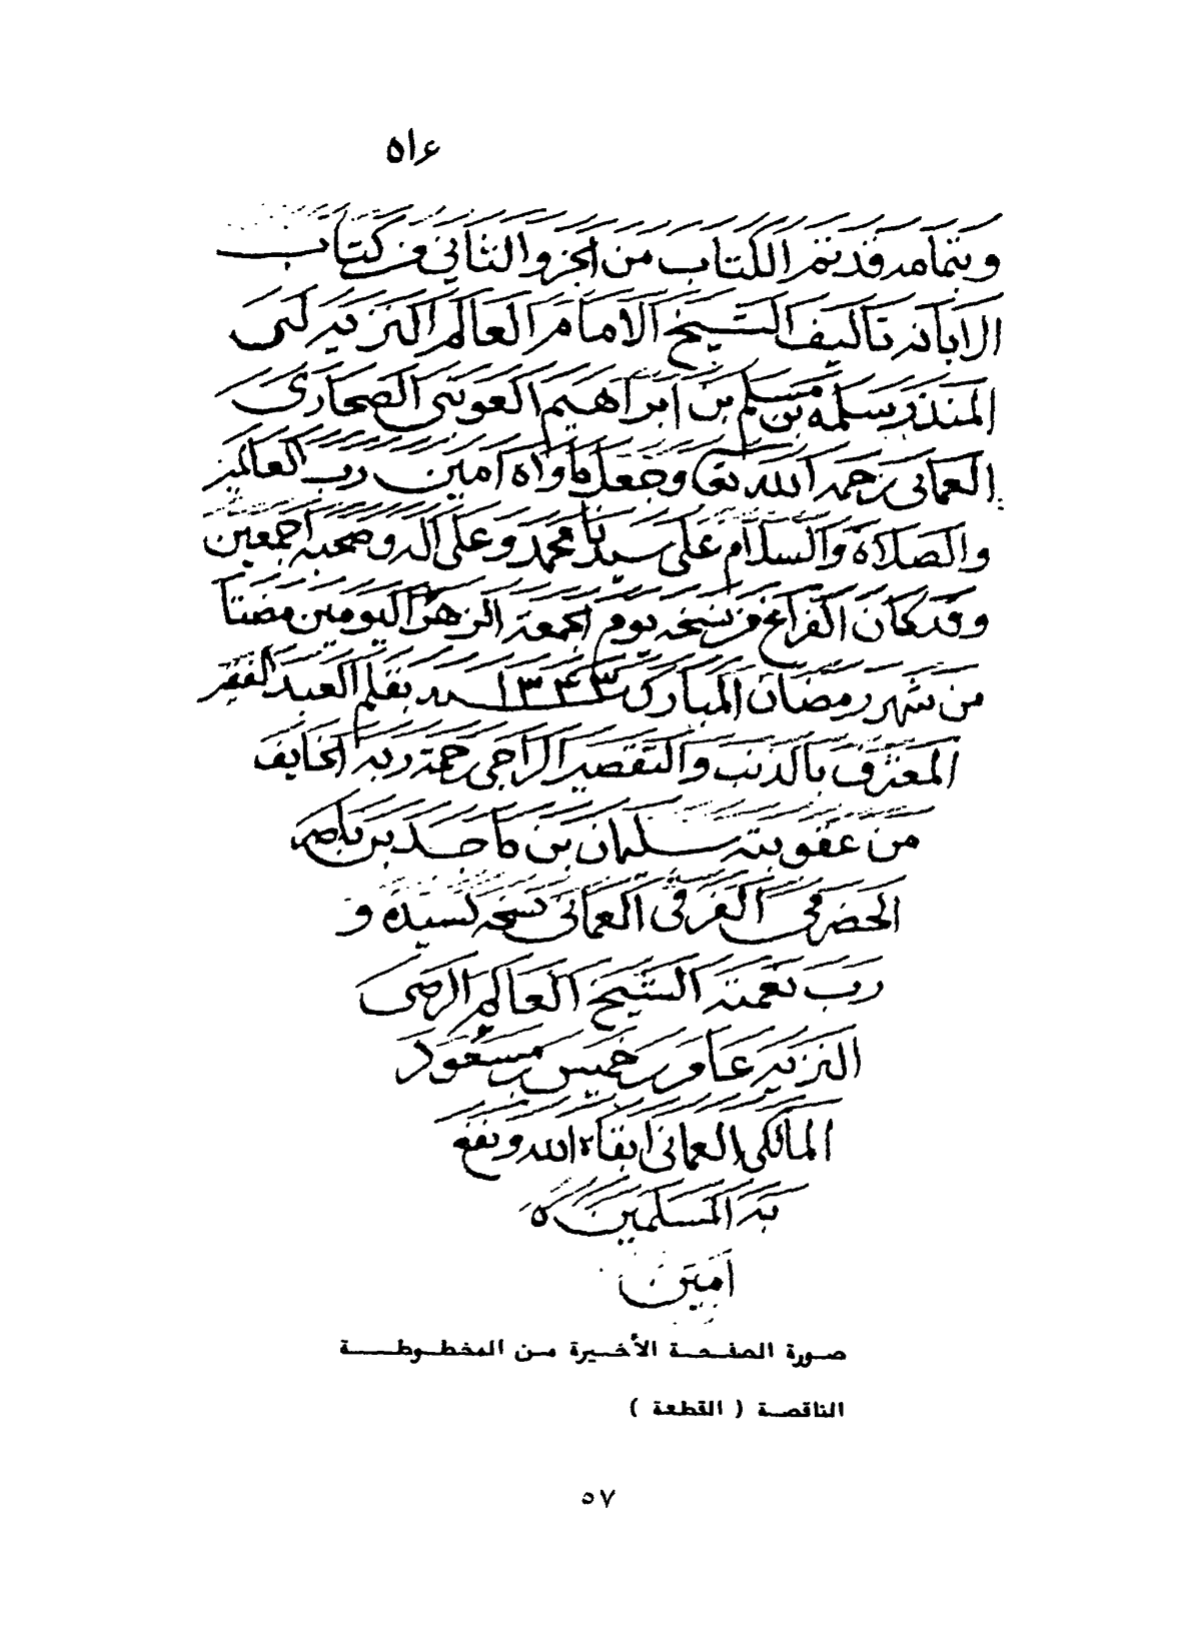 ٥١٤
وبتمامه قد تم الكتاب من الجزو الثاني من كتاب
الابانه تاليف الشيخ الامام العالم النزيه لبى
المنذر سلمه بن مسلم بن ابراهيم العوتبى الصحارى
العمانى رحمه الله تعا وجعل ماواه امين رب العالمين
والصلاة والسلام على سيدنا محمد وعلى اله وصحبه اجمعين
وقد كان الفراغ من نسخه يوم الجمعة الزهرا ليومين مضتا
من شهر رمضان المبارك ١٣٤٣ سنه بقلم العبد الفقير
المعترف بالذنب والتقصير الراجى رحمة ربه الخايف
من عقوبته سليمان بن ماجد بن ناصر
الحضرمى الغرفى العمانى نسخه لسيده و
رب نعمته الشيخ العالم الرضى
النزيه عامر بن خميس بن مسعود
المالكى العمانى ابقاه الله ونفع
به المسلمين ه
امين
صورة الصفحة الأخيرة من المخطوطة
الناقصة ( القطعة )
٥٧